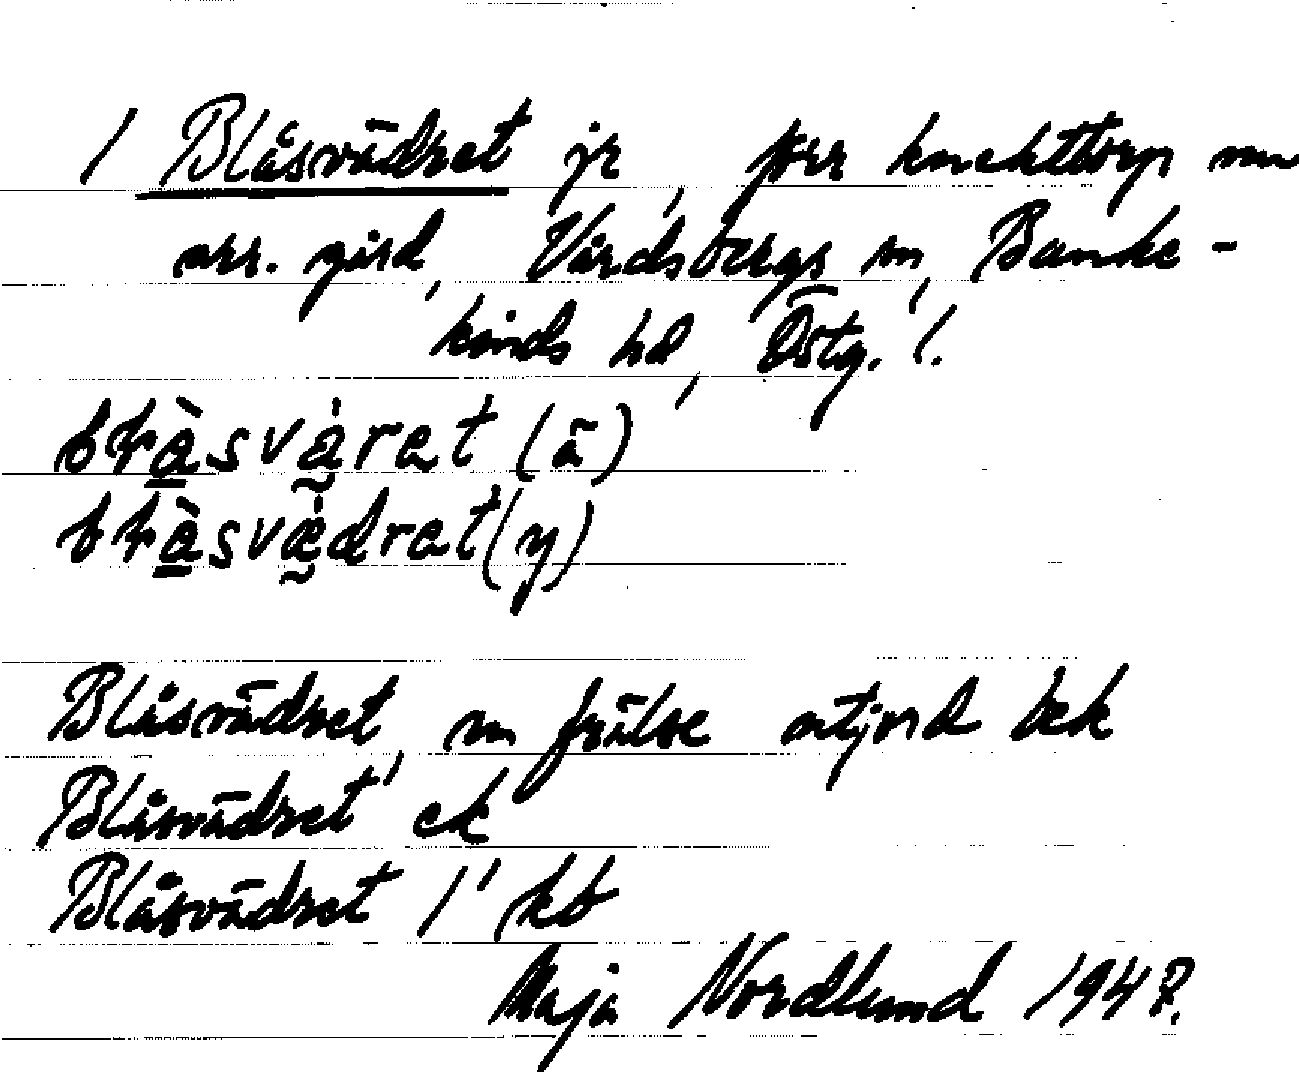 / Blåsvädret jr, förr knekttorp nu
arr. gård, Vårdsbergs sn, Banke-
kinds hd, Östg. l.
bḷåsväret (ä)
bḷåsvädret (y)
Blåsvädret, sn frälse utjord bek
Blåsvädret ek
Blåsvädret 1' kb
Maja Nordlund 1948.